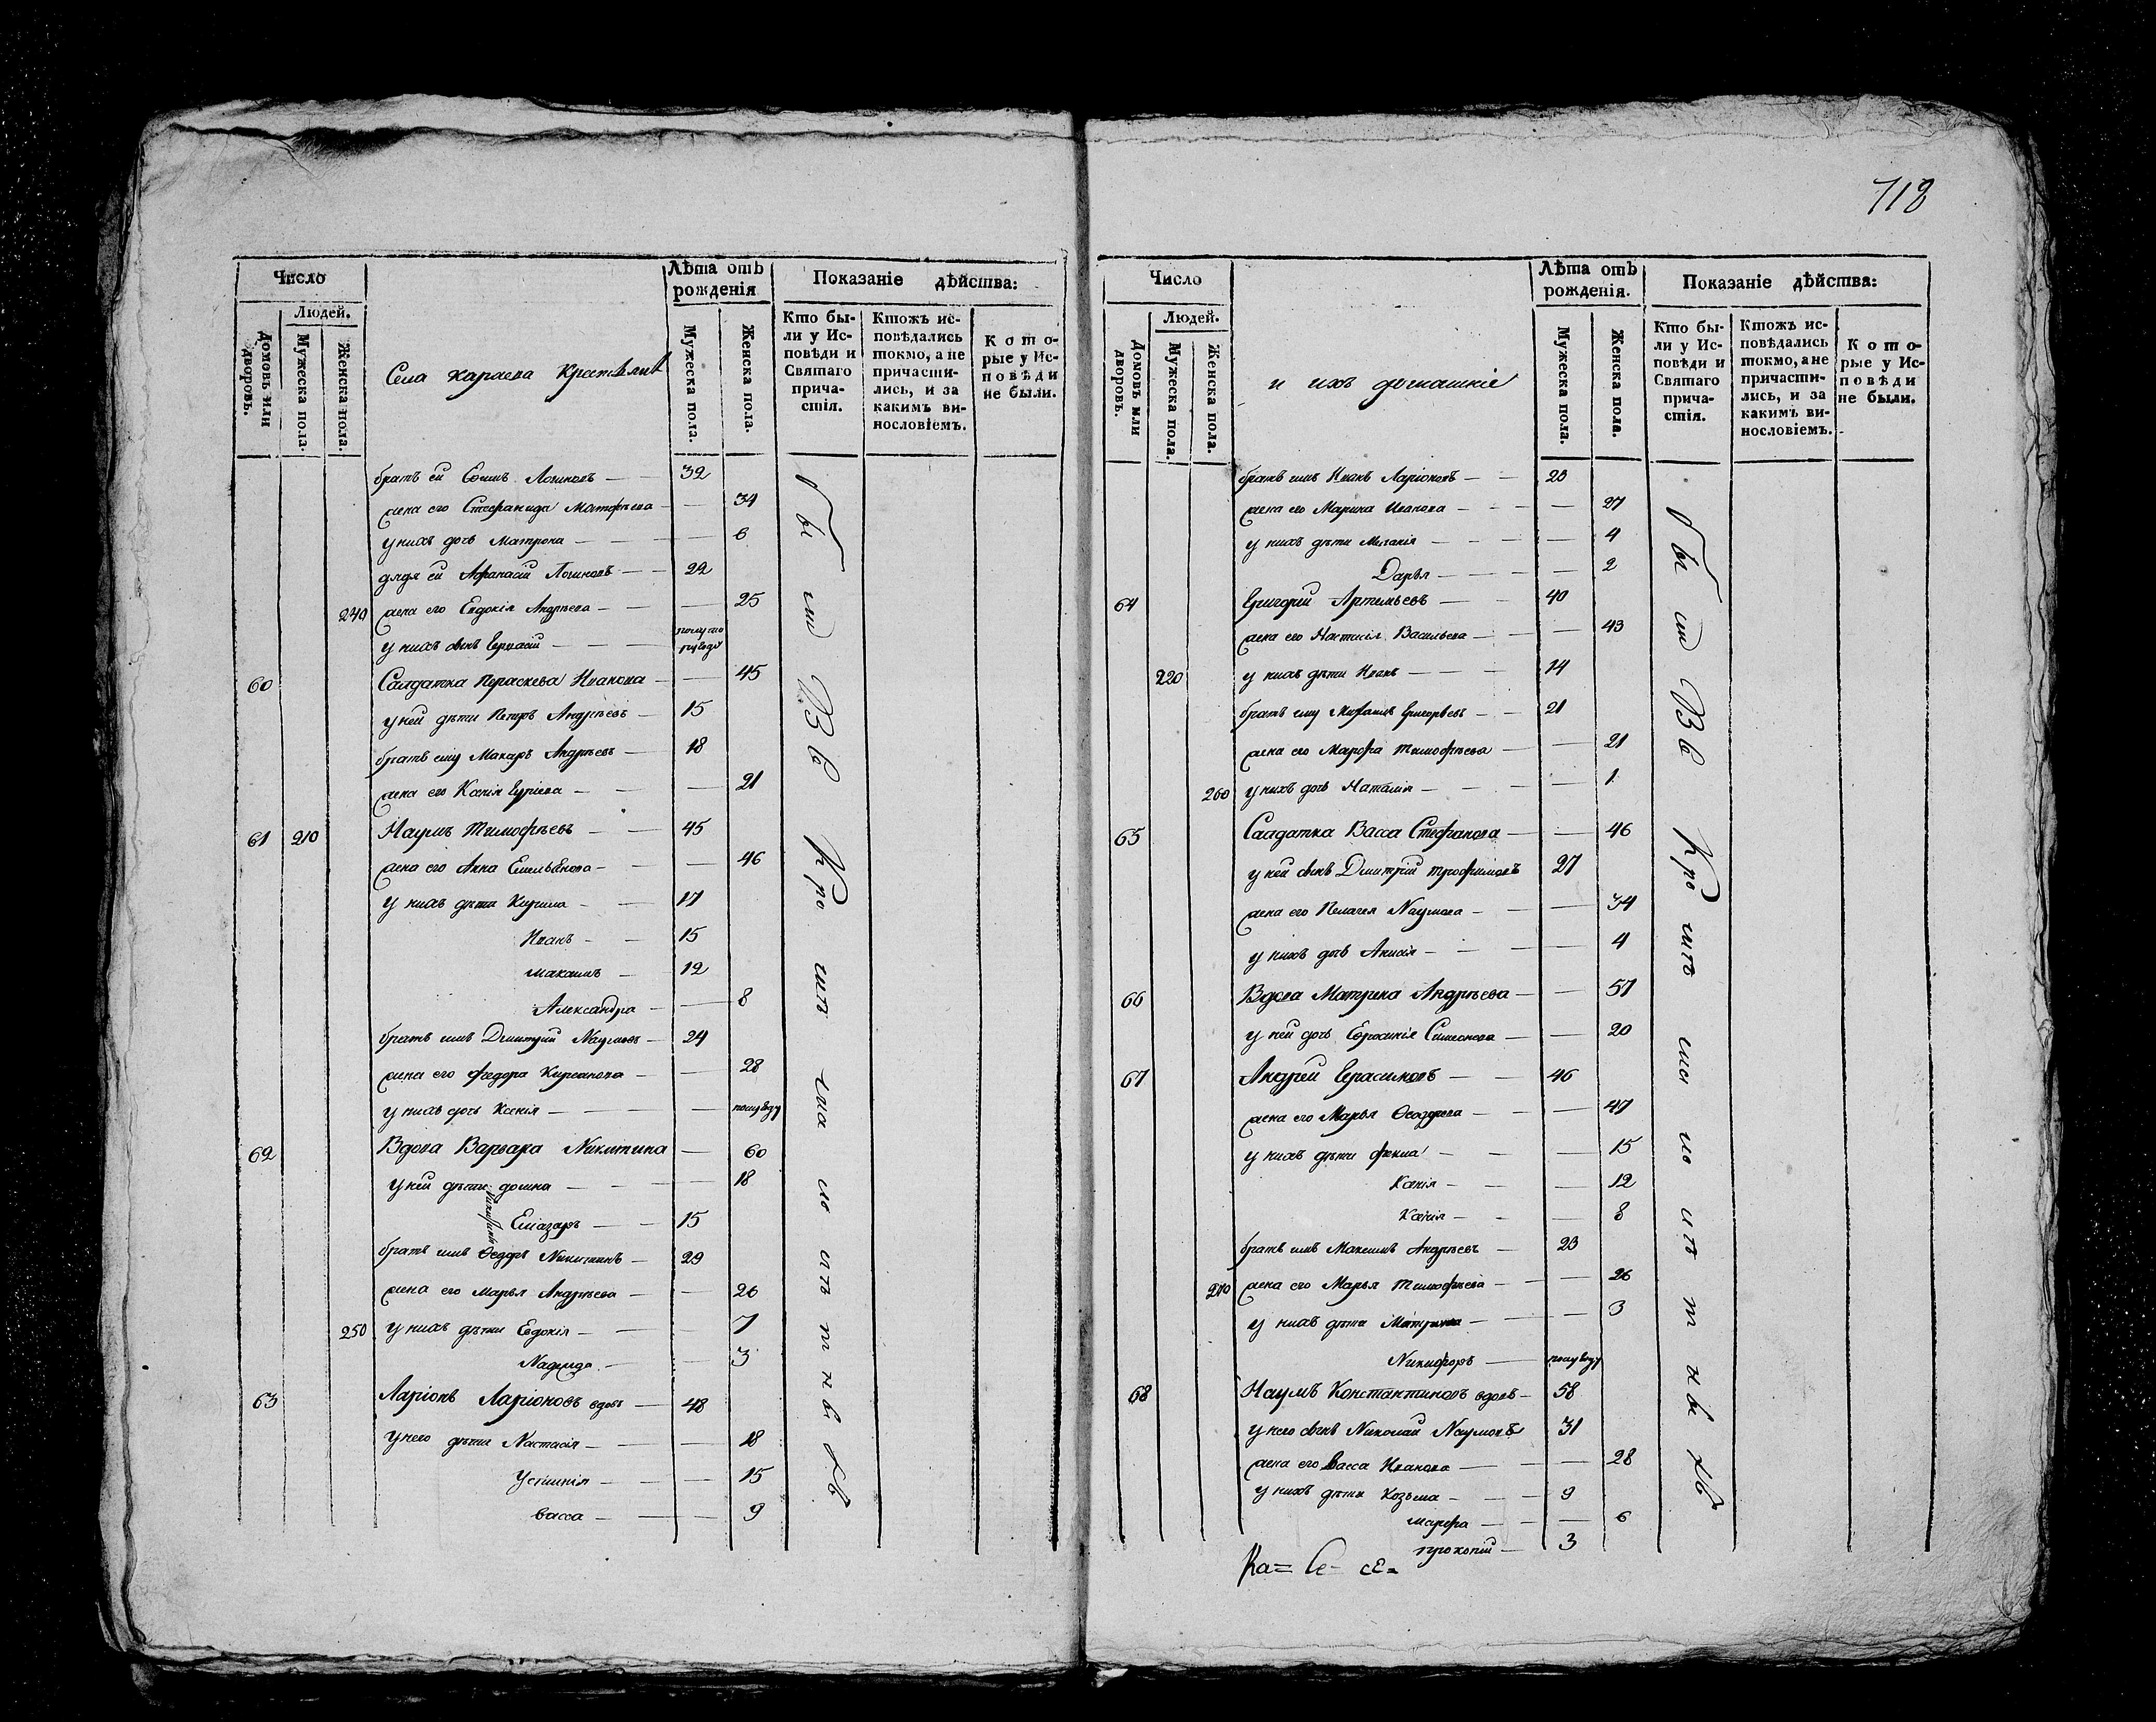 718
Число
Людей.
Домовъ или дворовъ.
Мужеска пола.
Женска пола.
Села Караева Крестьяне
Лѣта отъ рожденія
Мужеска пола.
Женска пола.
Показаніе дѣйства:
Кто были у Исповѣди и Святаго причастія.
Ктожъ исповѣдались токмо, а не причастились, и за какимъ винословіемъ.
Которые у Исповѣди не были.
братъ ей Логиновъ 32
жена его Стефанида Матфѣева 34
у нихъ дочь Матрона 6
дядя ей Афанасій Логиновъ 22
240 жена его Евдокія Андрѣева 25
у нихъ сынъ
60 Салдатка Параскева Иванова 45
у ней дѣти Петръ Андрѣевъ 15
братъ ему Макаръ Андрѣевъ 18
жена его Ксенія 21
61 210 Наумъ Тимофѣевъ 45
жена его Анна Емельянова 46
у нихъ дѣти Кирила 17
Иванъ 15
Максимъ 12
Александра 8
братъ имъ Дмитрій Наумовъ 24
жена его Федора 28
у нихъ дочь Ксенія полугоду
62 Вдова Варвара Никитина 60
у ней дѣти Домна 18
Елиазаръ 15
братъ имъ Ѳедоръ Никитинъ 29
жена его Марья Андрѣева 26
250 у нихъ дѣти Евдокія 7
3
63 Ларіонъ Ларіоновъ вдовъ 48
у него дѣти Настасія 18
Устинія 15
Васса 9
Число
Людей.
Домовъ или дворовъ.
Мужеска пола.
Женска пола.
и ихъ домашніе
Лѣта отъ рожденія.
Мужеска пола.
Женска пола.
Показаніе дѣйства:
Кто были у Исповѣди и Святаго причастія.
Ктожъ исповѣдались токмо, а не причастились, и за какимъ винословіемъ.
Которые у Исповѣди не были.
братъ имъ Иванъ Ларіоновъ 23
жена его Марина Иванова 27
у нихъ дѣти Меланія 4
Дарья 2
64 Григорій Артемьевъ 40
жена его Настасія Васильева 43
220 у нихъ дѣти Иванъ 14
братъ ему Григорьевъ 21
жена его Марфа Тимофѣева 21
260 у нихъ дочь Наталія 1
65 Салдатка Васса Стефанова 46
у ней сынъ Дмитрій Трофимовъ 27
жена его Пелагея Наумова 34
у нихъ дочь Анисія 4
66 Вдова Матрена Андрѣева 57
у ней дочь Евфросинія Симеонова 20
67 Андрей Герасимовъ 46
жена его Марья 47
у нихъ дѣти Фекла 15
Ксенія 12
Ксенія 8
братъ имъ Максимъ Андрѣевъ 23
270 жена его Марья Тимофѣева 26
у нихъ дѣти Матрена 3
Никифоръ полугоду
68 Наумъ Константиновъ вдовъ 58
у него сынъ Николай Наумовъ 31
жена его Васса Иванова 28
у нихъ дѣти Козьма 9
Марфа 6
Прокопій 3